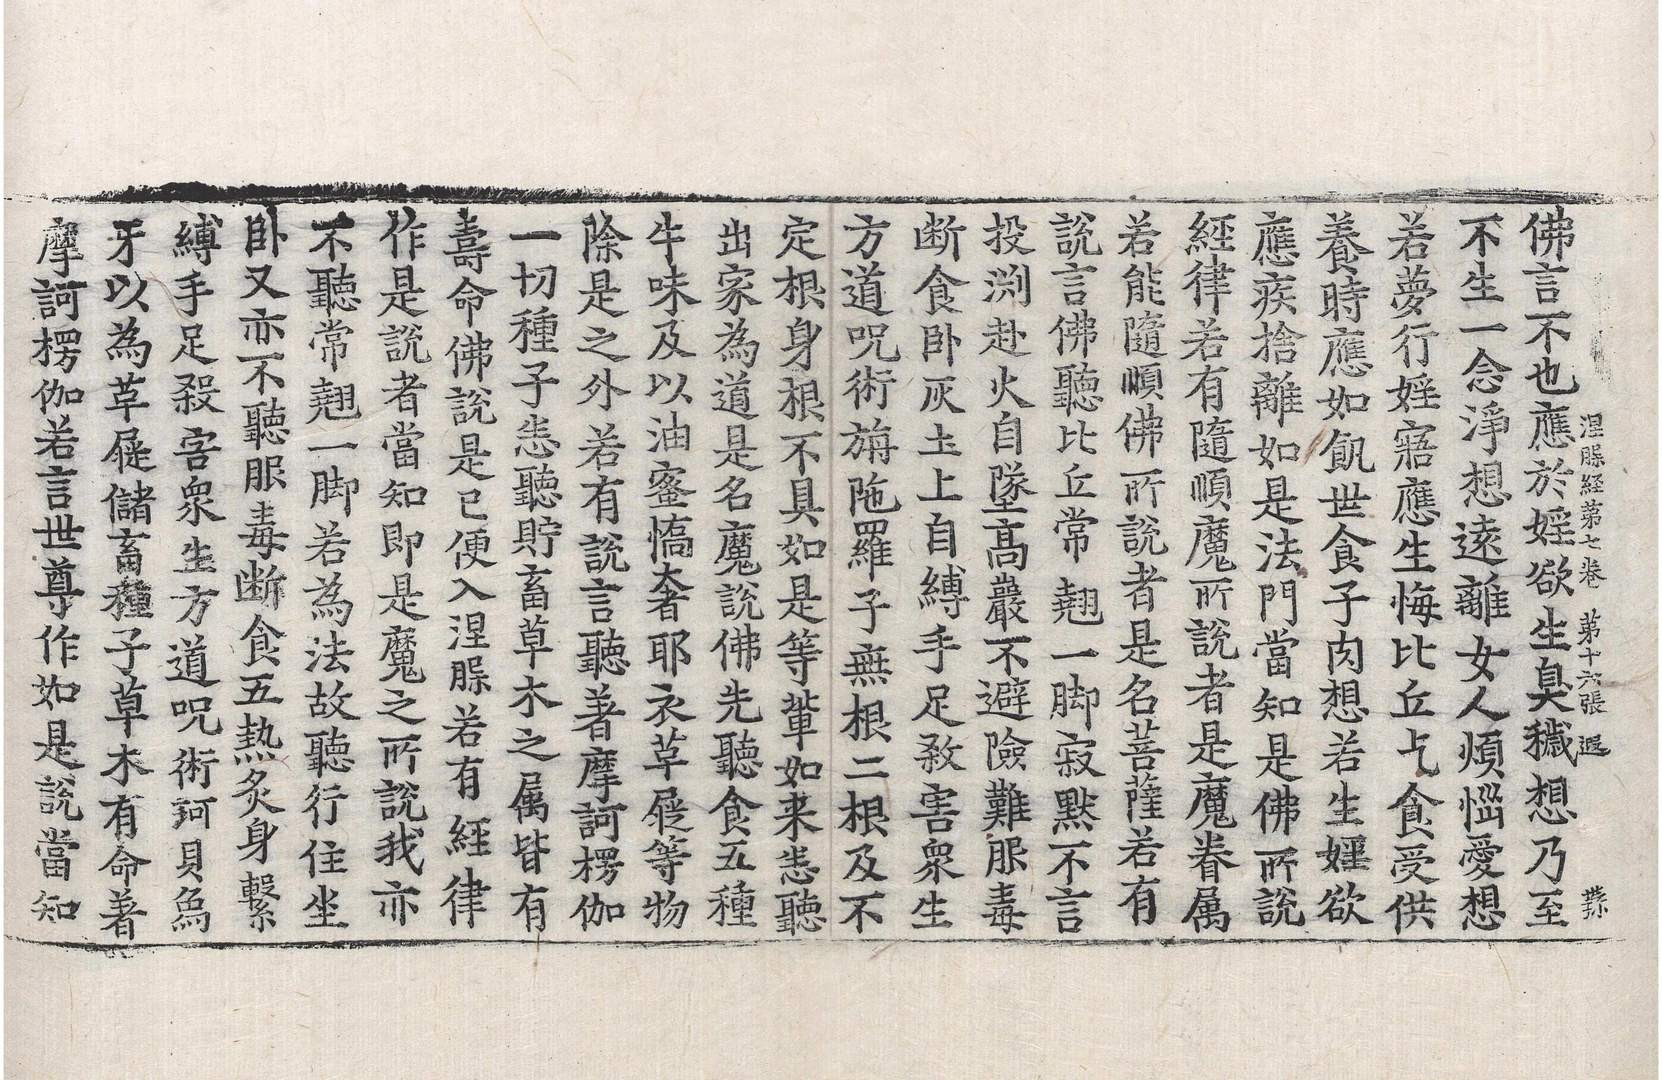 涅槃経第七卷 第十六張 遐
佛言不也應於婬欲生臭穢想乃至
不生一念淨想遠離女人煩惱愛想
若夢行婬寤應生悔比丘乞食受供
養時應如飢世食子肉想若生婬欲
應疾捨離如是法門當知是佛所說
經律若有隨順魔所說者是魔眷属
若能隨順佛所說者是名菩薩若有
說言佛聽比丘常翹一脚寂黙不言
投渕赴火自墜髙巖不避險難服毒
断食卧灰圡上自縛手足殺害衆生
方道呪術旃陁羅子無根二根及不
定根身根不具如是等軰如来悉聽
出家為道是名魔說佛先聽食五種
牛味及以油蜜憍奢耶衣草屣等物
除是之外若有說言聽著摩訶楞伽
一切種子悉聽貯畜草木之属皆有
壽命佛說是已便入涅槃若有經律
作是說者當知即是魔之所說我亦
不聽常翹一脚若為法故聽行住坐
卧又亦不聽服毒断食五熱炙身繫
縛手足殺害衆生方道呪術珂貝為
牙以為草屣儲畜種子草木有命著
摩訶楞伽若言世尊作如是說當知